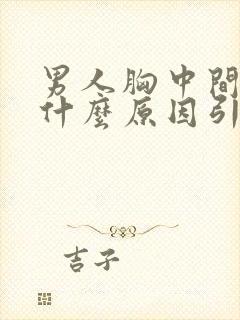 男人胸中間
什麼原因引
吉子